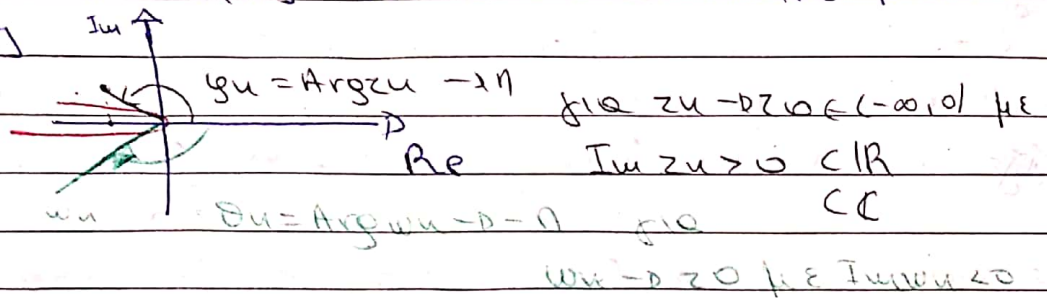 Im
φn = Argzn → π
για zn → z0 ∈ (-∞,0) με
Re
Im zn > 0
⊂ ℝ
⊂ ℂ
wn
θn = Argwn → -π για
wn → z0 με Imwn < 0